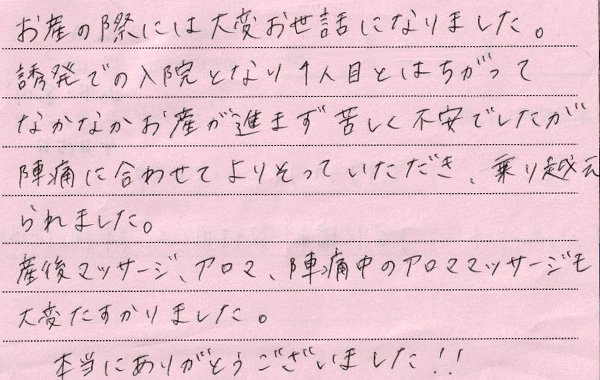 お産の際には大変お世話になりました。
誘発での入院となり1人目とはちがって
なかなかお産が進まず苦しく不安でしたが
陣痛に合わせてよりそっていただき、乗り越え
られました。
産後マッサージ、アロマ、陣痛中のアロママッサージも
大変たすかりました。
本当にありがとうございました!!